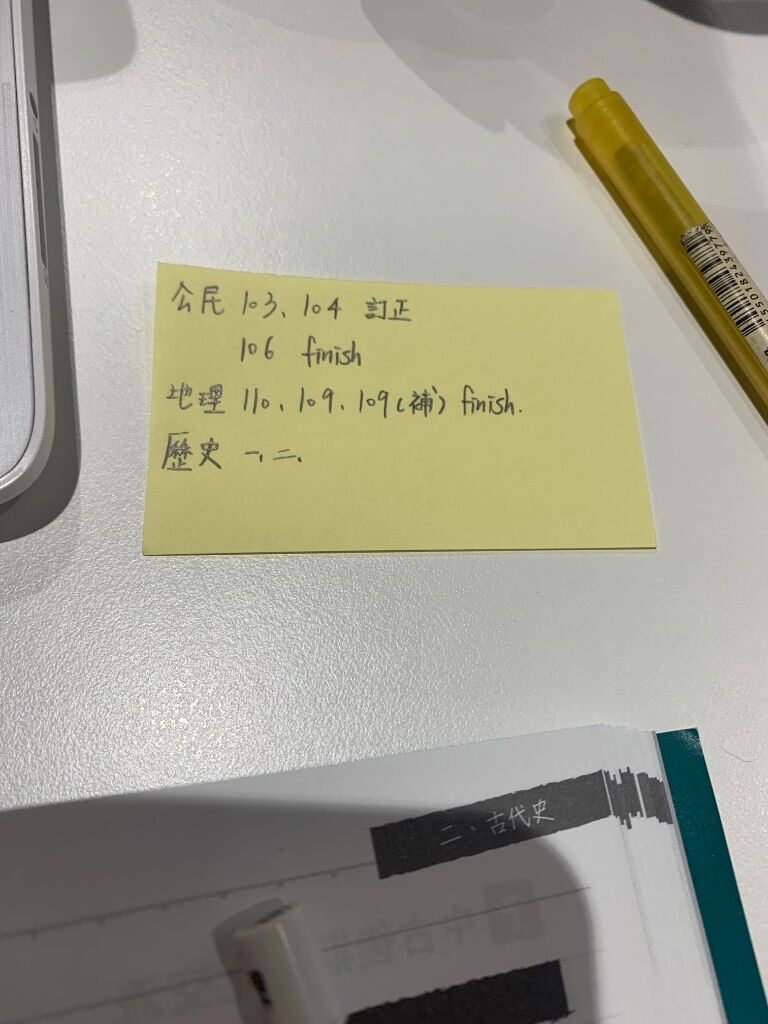 公民 103、104 訂正
106 finish
地理 110、109、109(補) finish.
歷史 一、二、
二、古代史